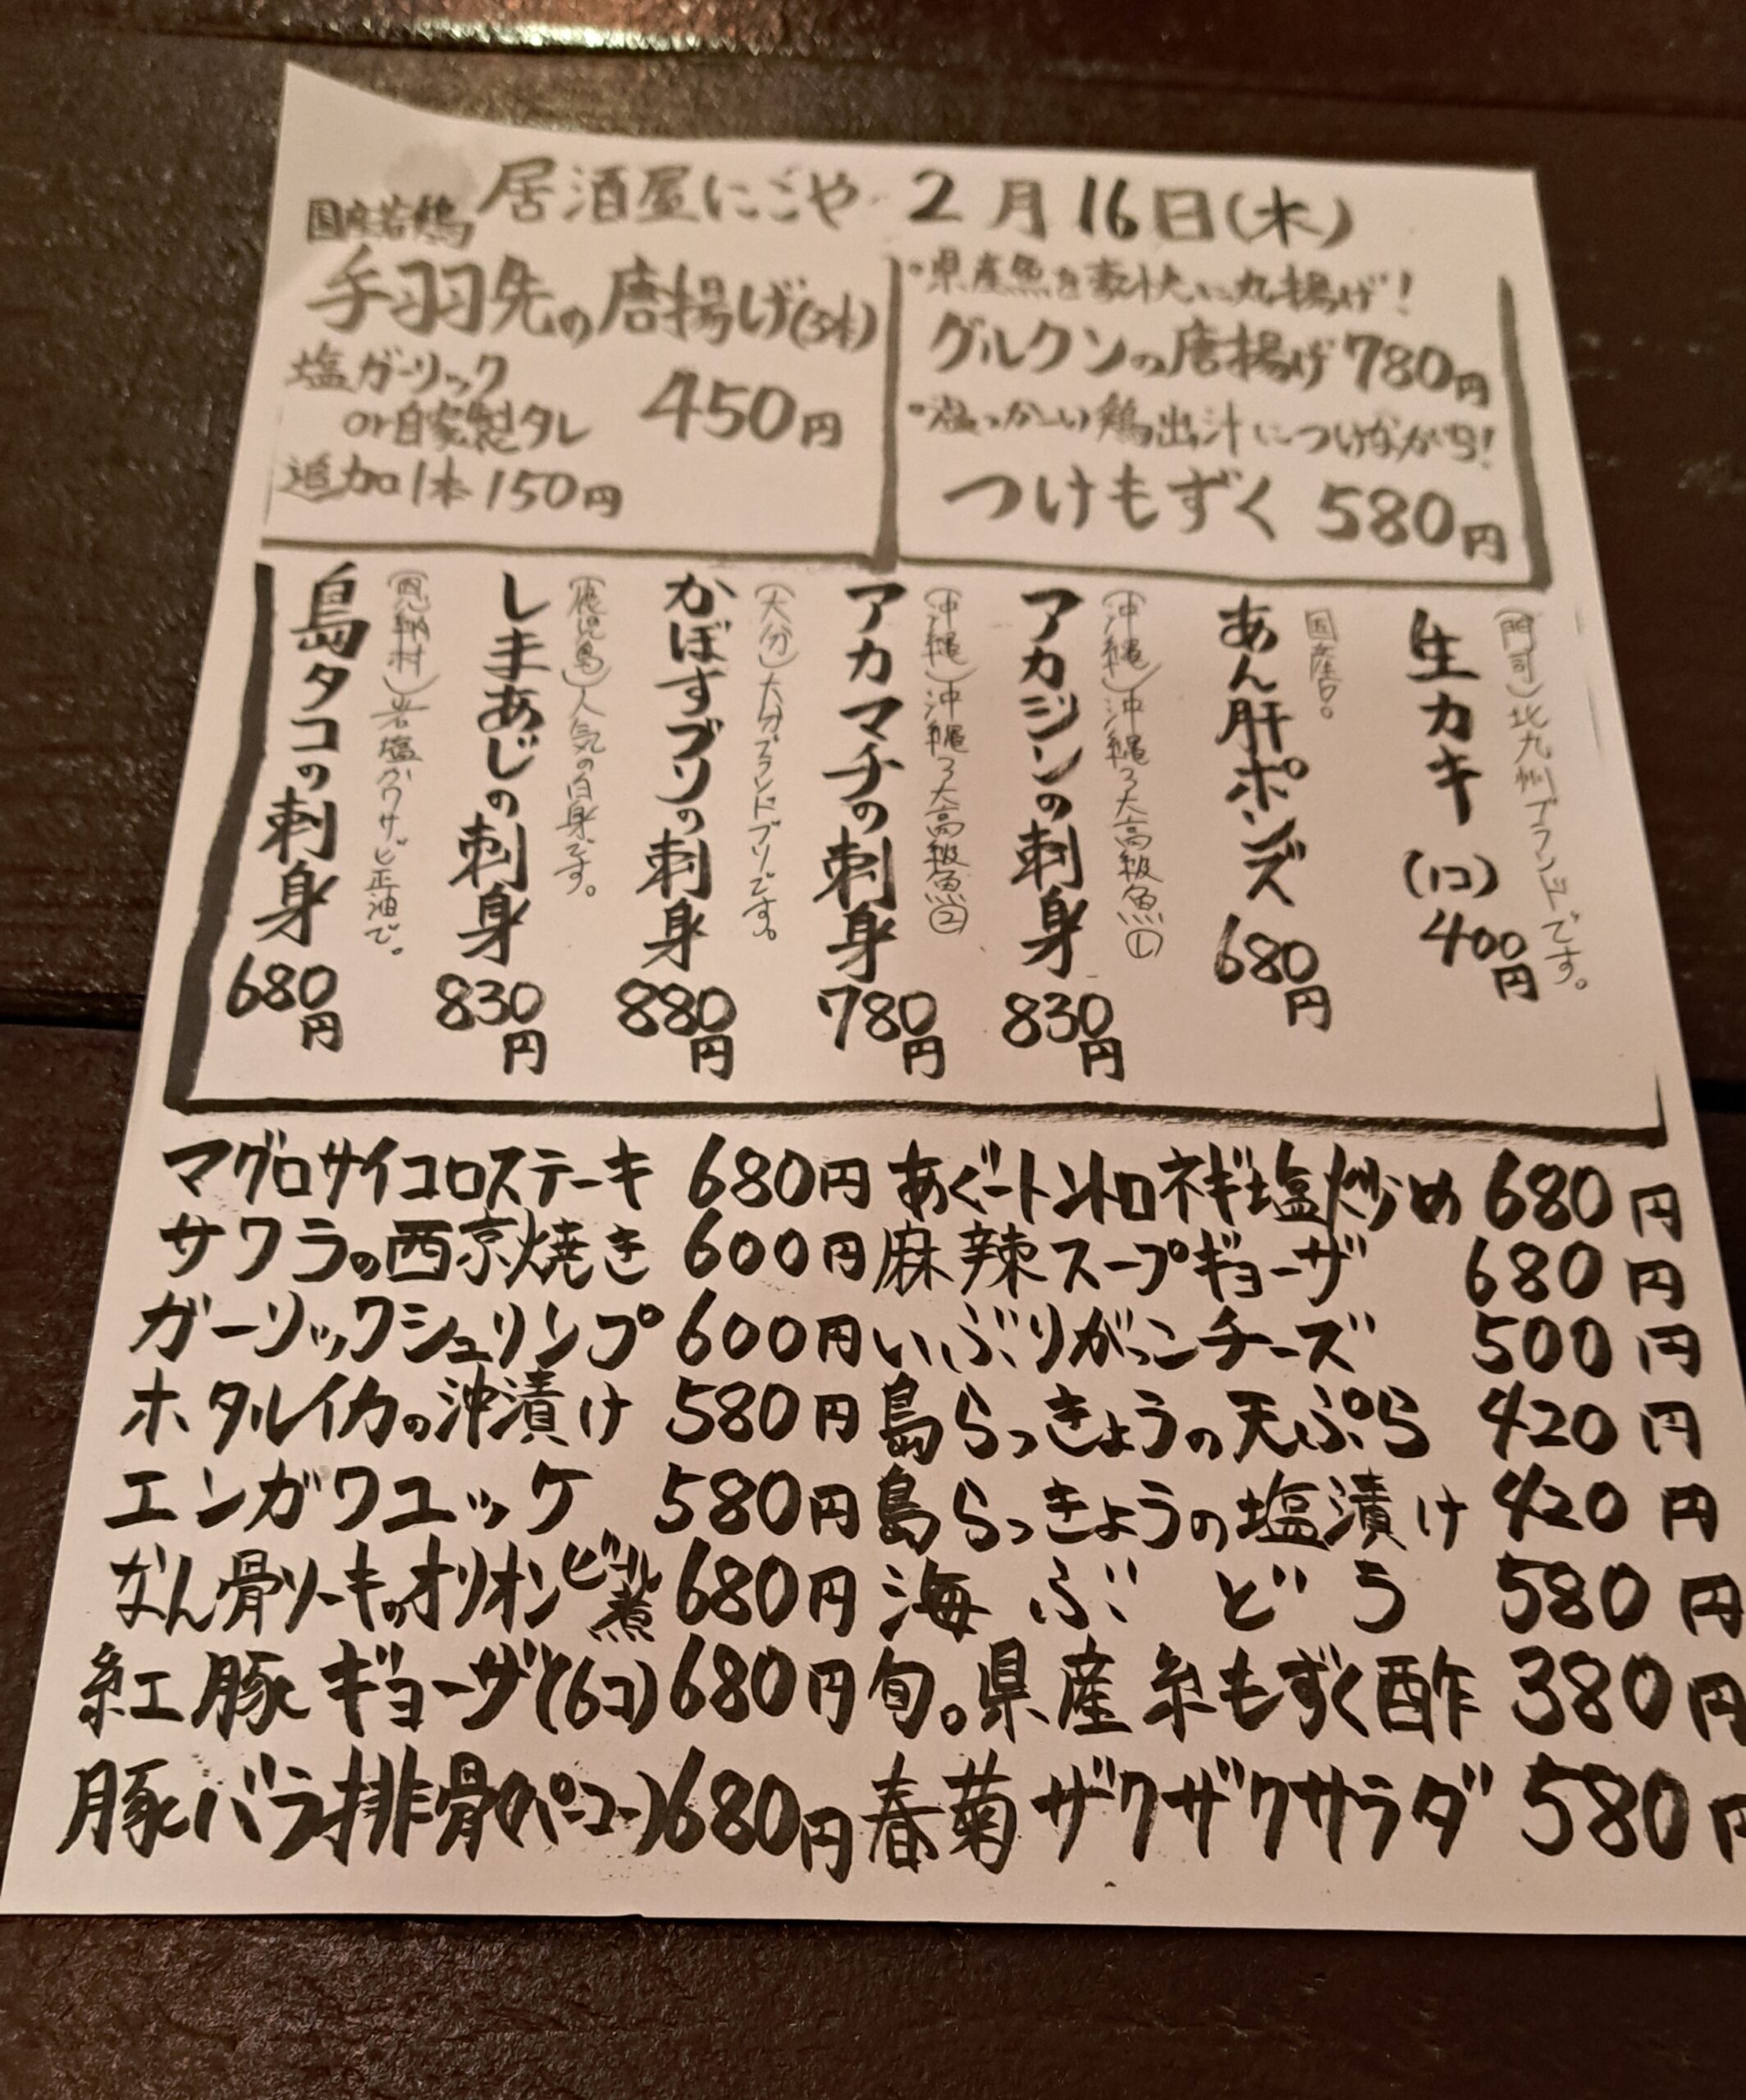 居酒屋にごや 2月16日(木)
国産若鶏
手羽先の唐揚げ(3本)
塩ガーリック
or自家製タレ 450円
追加1本150円
・県産魚を豪快に丸揚げ!
グルクンの唐揚げ780円
・温っかーい鶏出汁につけながら!
つけもずく 580円
(門司)北九州ブランドです。
生カキ(1コ)400円
国産。
あん肝ポンズ680円
(沖縄)沖縄3大高級魚①
アカジンの刺身830円
(沖縄)沖縄3大高級魚②
アカマチの刺身780円
(大分)大分ブランドブリです。
かぼすブリの刺身880円
(鹿児島)人気の白身です。
しまあじの刺身830円
(恩納村)岩塩かワサビ正油で。
島タコの刺身680円
マグロサイコロステーキ 680円
サワラの西京焼き 600円
ガーリックシュリンプ 600円
ホタルイカの沖漬け 580円
エンガワユッケ 580円
なん骨ソーキのオリオンビール煮 680円
紅豚ギョーザ(6コ)680円
豚バラ排骨(パーコー)680円
あぐートントロネギ塩炒め 680円
麻辣スープギョーザ 680円
いぶりがっこチーズ 500円
島らっきょうの天ぷら 420円
島らっきょうの塩漬け 420円
海ぶどう 580円
旬。県産糸もずく酢 380円
春菊ザクザクサラダ 580円